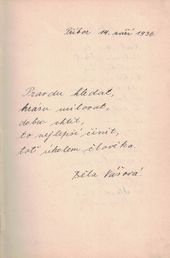 Příbor 14. září 1936
Pravdu hledat,
krásu milovat,
dobro chtít,
to nejlepší činit,
toť úkolem člověka.
Běla Vášová!